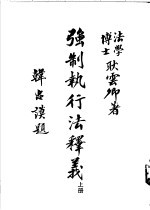 法學
博士 耿雲卿著
強制執行法釋義 上册
韓忠謨題